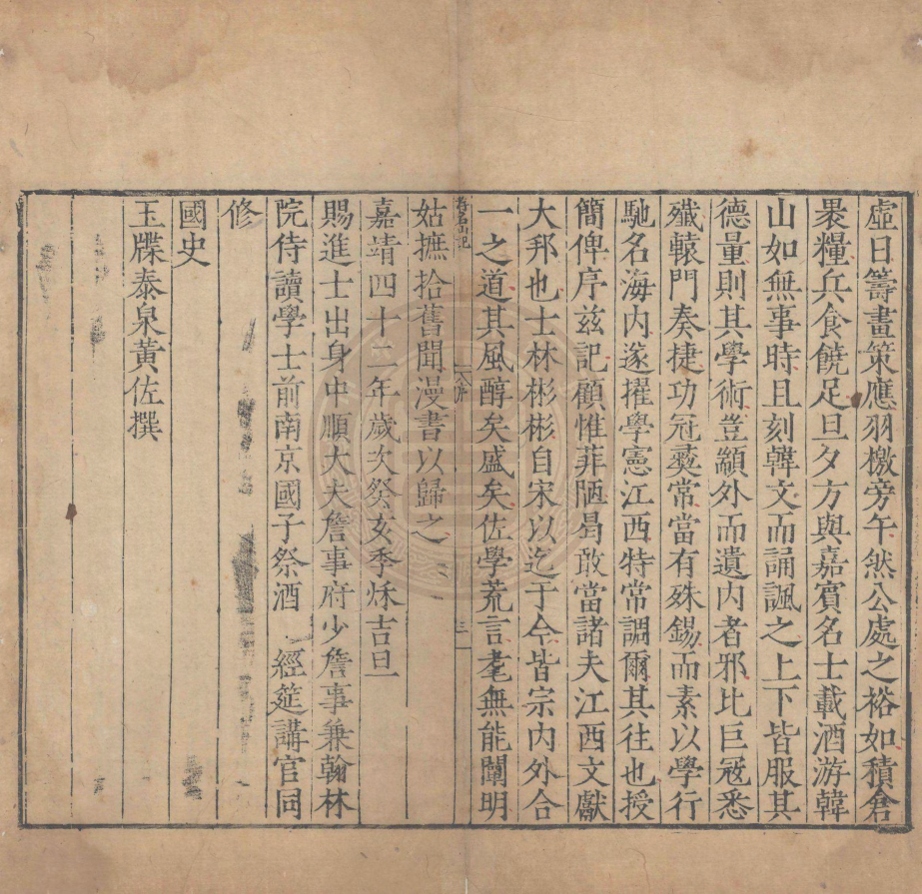 虛日籌畫策應羽檄旁午然公處之裕如積倉
褁糧兵食饒足旦夕方與嘉賓名士載酒游韓
山如無事時且刻韓文而誦諷之上下皆服其
德量則其學術豈顓外而遺内者邪比巨寇悉
殲轅門奏捷功冠彛常當有殊錫而素以學行
馳名海内遂擢學憲江西特常調爾其往也授
簡俾序兹記顧惟菲陋曷敢當諸夫江西文獻
大邦也士林彬彬自宋以迄于今皆宗内外合
一之道其風醇矣盛矣佐學荒言耄無能闡明
名山記
三
姑摭拾舊聞漫書以歸之
嘉靖四十二年歲次癸亥季秌吉旦
賜進士出身中順大夫詹事府少詹事兼翰林
院侍讀學士前南京國子祭酒 經筵講官同
修
國史
玉牒泰泉黃佐撰